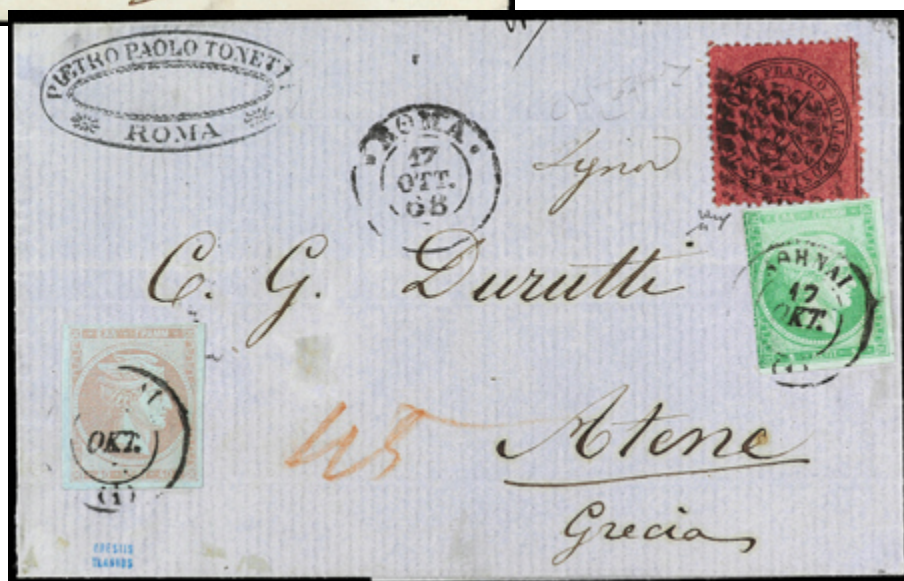 PIETRO PAOLO TONETTI
ROMA
ROMA
17
OTT.
68
FRANCO BOLLO
Signor
C. G. Durutti
ΑΘΗΝΑΙ
17
ΟΚΤ.
(1)
ΟΚΤ.
(1)
45
Atene
Grecia